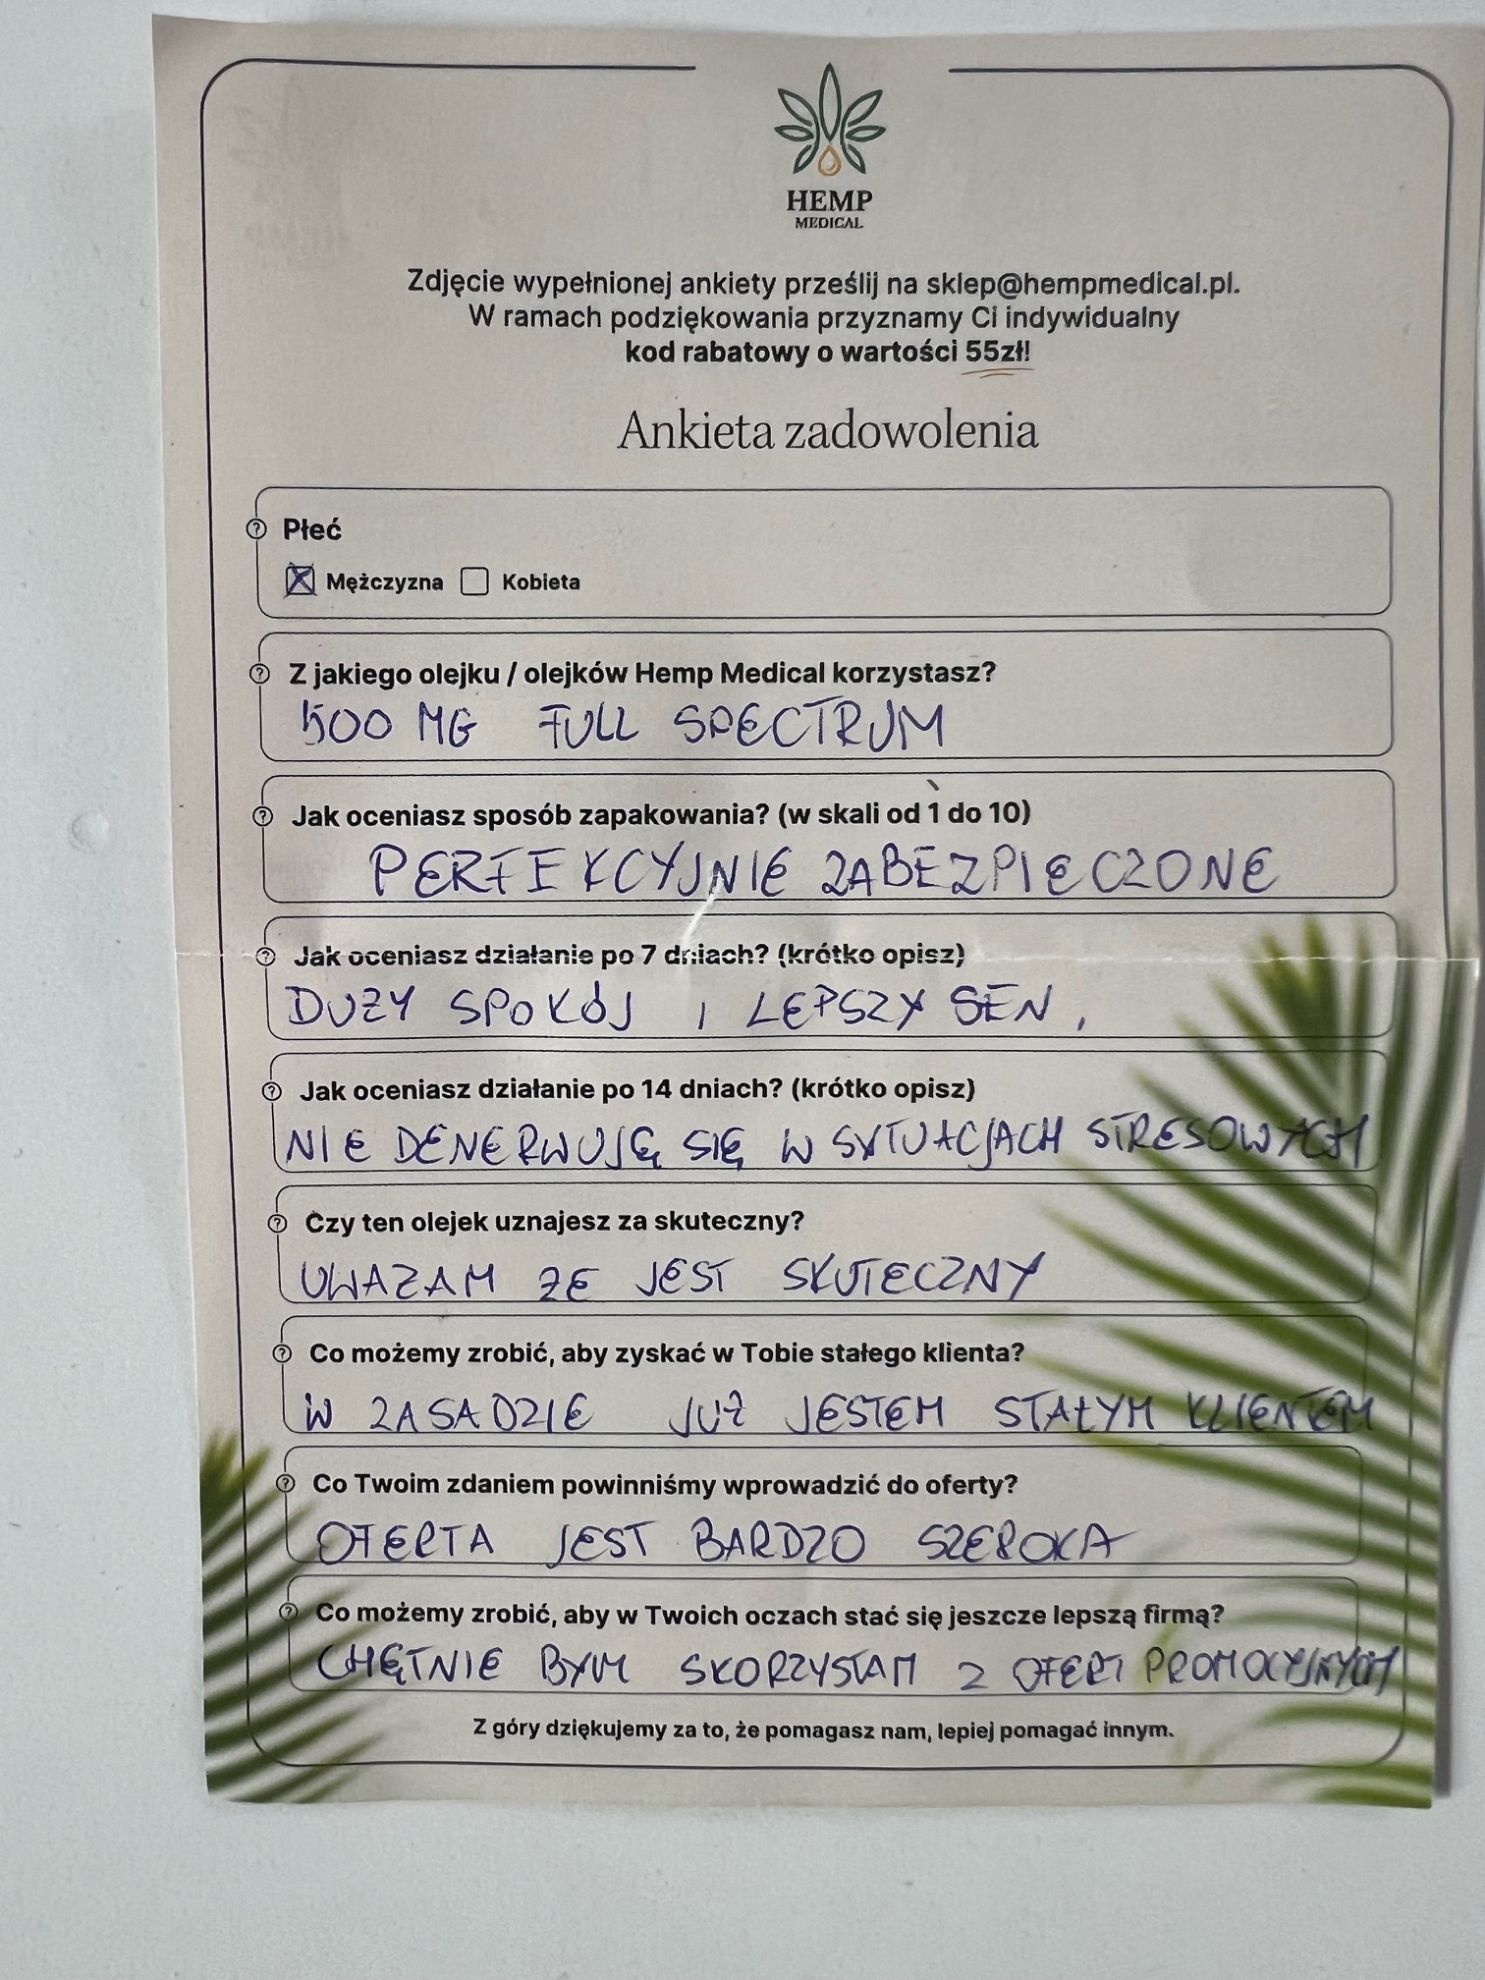 HEMP
MEDICAL
Zdjęcie wypełnionej ankiety prześlij na sklep@hempmedical.pl.
W ramach podziękowania przyznamy Ci indywidualny
kod rabatowy o wartości 55zł!
Ankieta zadowolenia
Płeć
Mężczyzna Kobieta
Z jakiego olejku / olejków Hemp Medical korzystasz?
500 MG FULL SPECTRUM
Jak oceniasz sposób zapakowania? (w skali od 1 do 10)
PERFEKCYJNIE ZABEZPIECZONE
Jak oceniasz działanie po 7 dniach? (krótko opisz)
DUŻY SPOKÓJ I LEPSZY SEN.
Jak oceniasz działanie po 14 dniach? (krótko opisz)
NIE DENERWUJĘ SIĘ W SYTUACJACH STRESOWYCH
Czy ten olejek uznajesz za skuteczny?
UWAZAM ZE JEST SKUTECZNY
Co możemy zrobić, aby zyskać w Tobie stałego klienta?
W ZASADZIE JUŻ JESTEM STAŁYM KLIENTEM
Co Twoim zdaniem powinniśmy wprowadzić do oferty?
OFERTA JEST BARDZO SZEROKA
Co możemy zrobić, aby w Twoich oczach stać się jeszcze lepszą firmą?
CHĘTNIE BYM SKORZYSTAŁ Z OFERT PROMOCYJNYCH
Z góry dziękujemy za to, że pomagasz nam, lepiej pomagać innym.